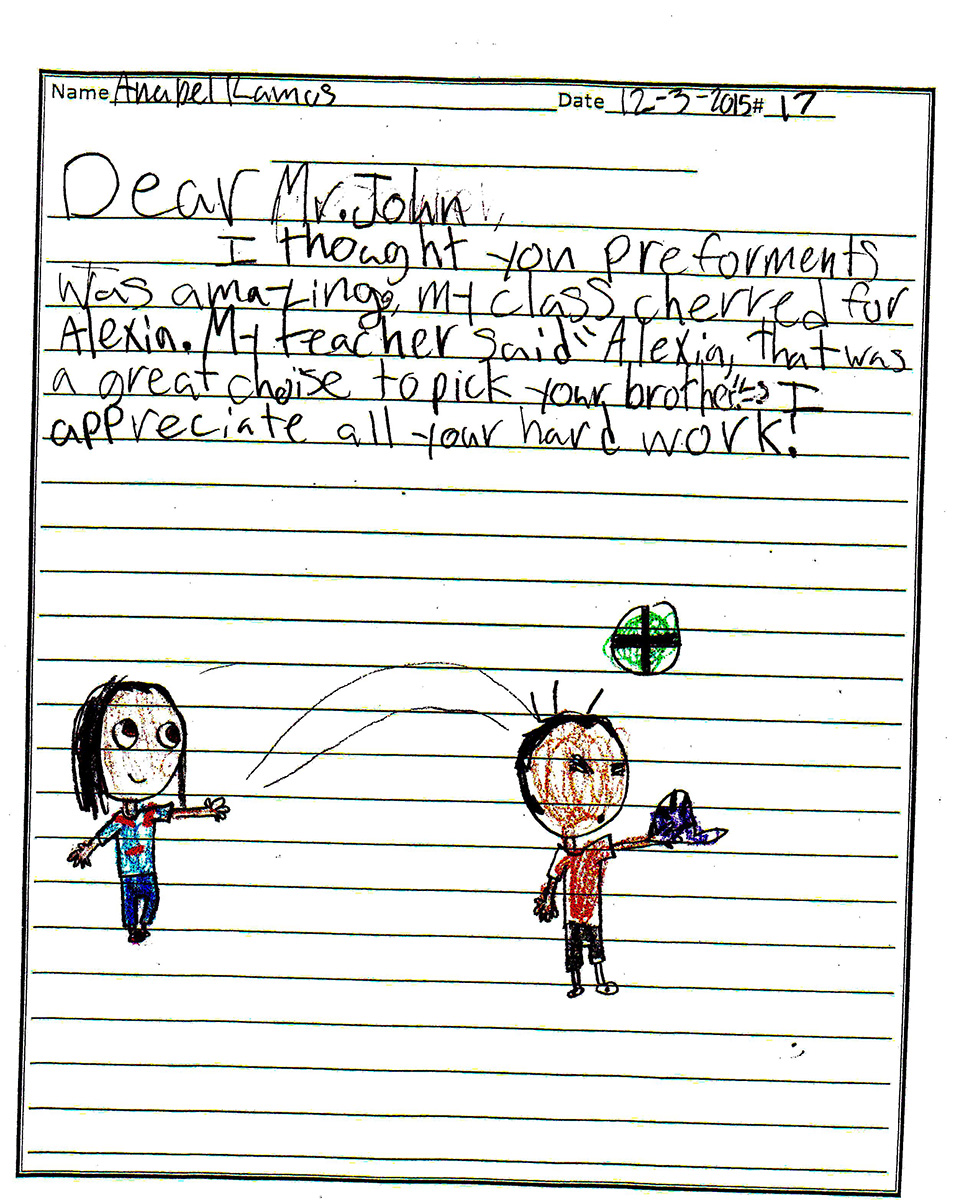 Name Anabel Ramos Date 12-3-2015 # 17
Dear Mr. John,
I thought you preforments
was amazing, my class cherred for
Alexia. My teacher said "Alexia, that was
a great choise to pick your brother." I
appreciate all your hard work!